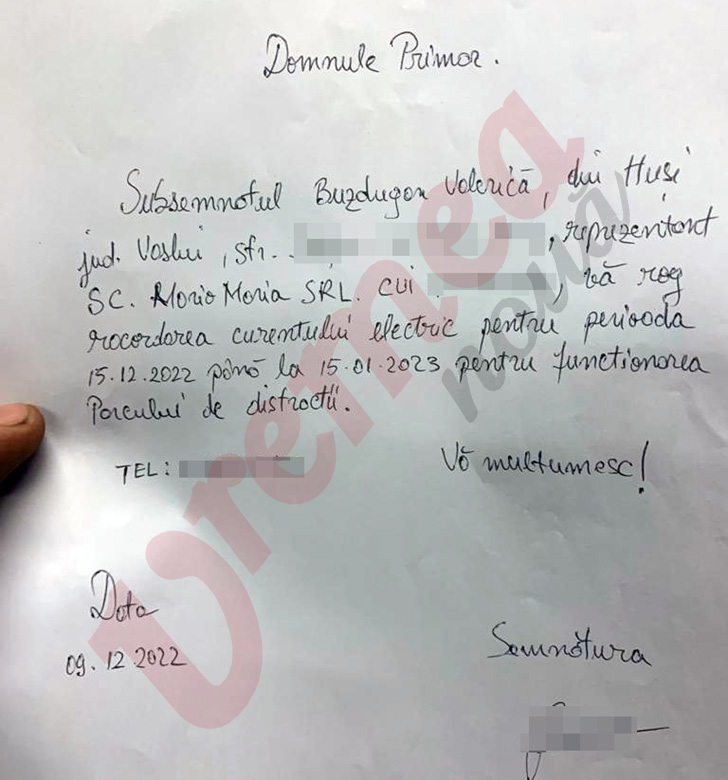 Domnule Primar.
Subsemnatul Buzdugan Valerică, din Huși
jud. Vaslui, str. , reprezentant
SC. Mario Maria SRL. CUI , vă rog
racordarea curentului electric pentru perioada
15.12.2022 până la 15.01.2023 pentru functionarea
Parcului de distractii.
TEL: Vă multumesc!
Data
09.12.2022
Semnătura
Vremea
nouă